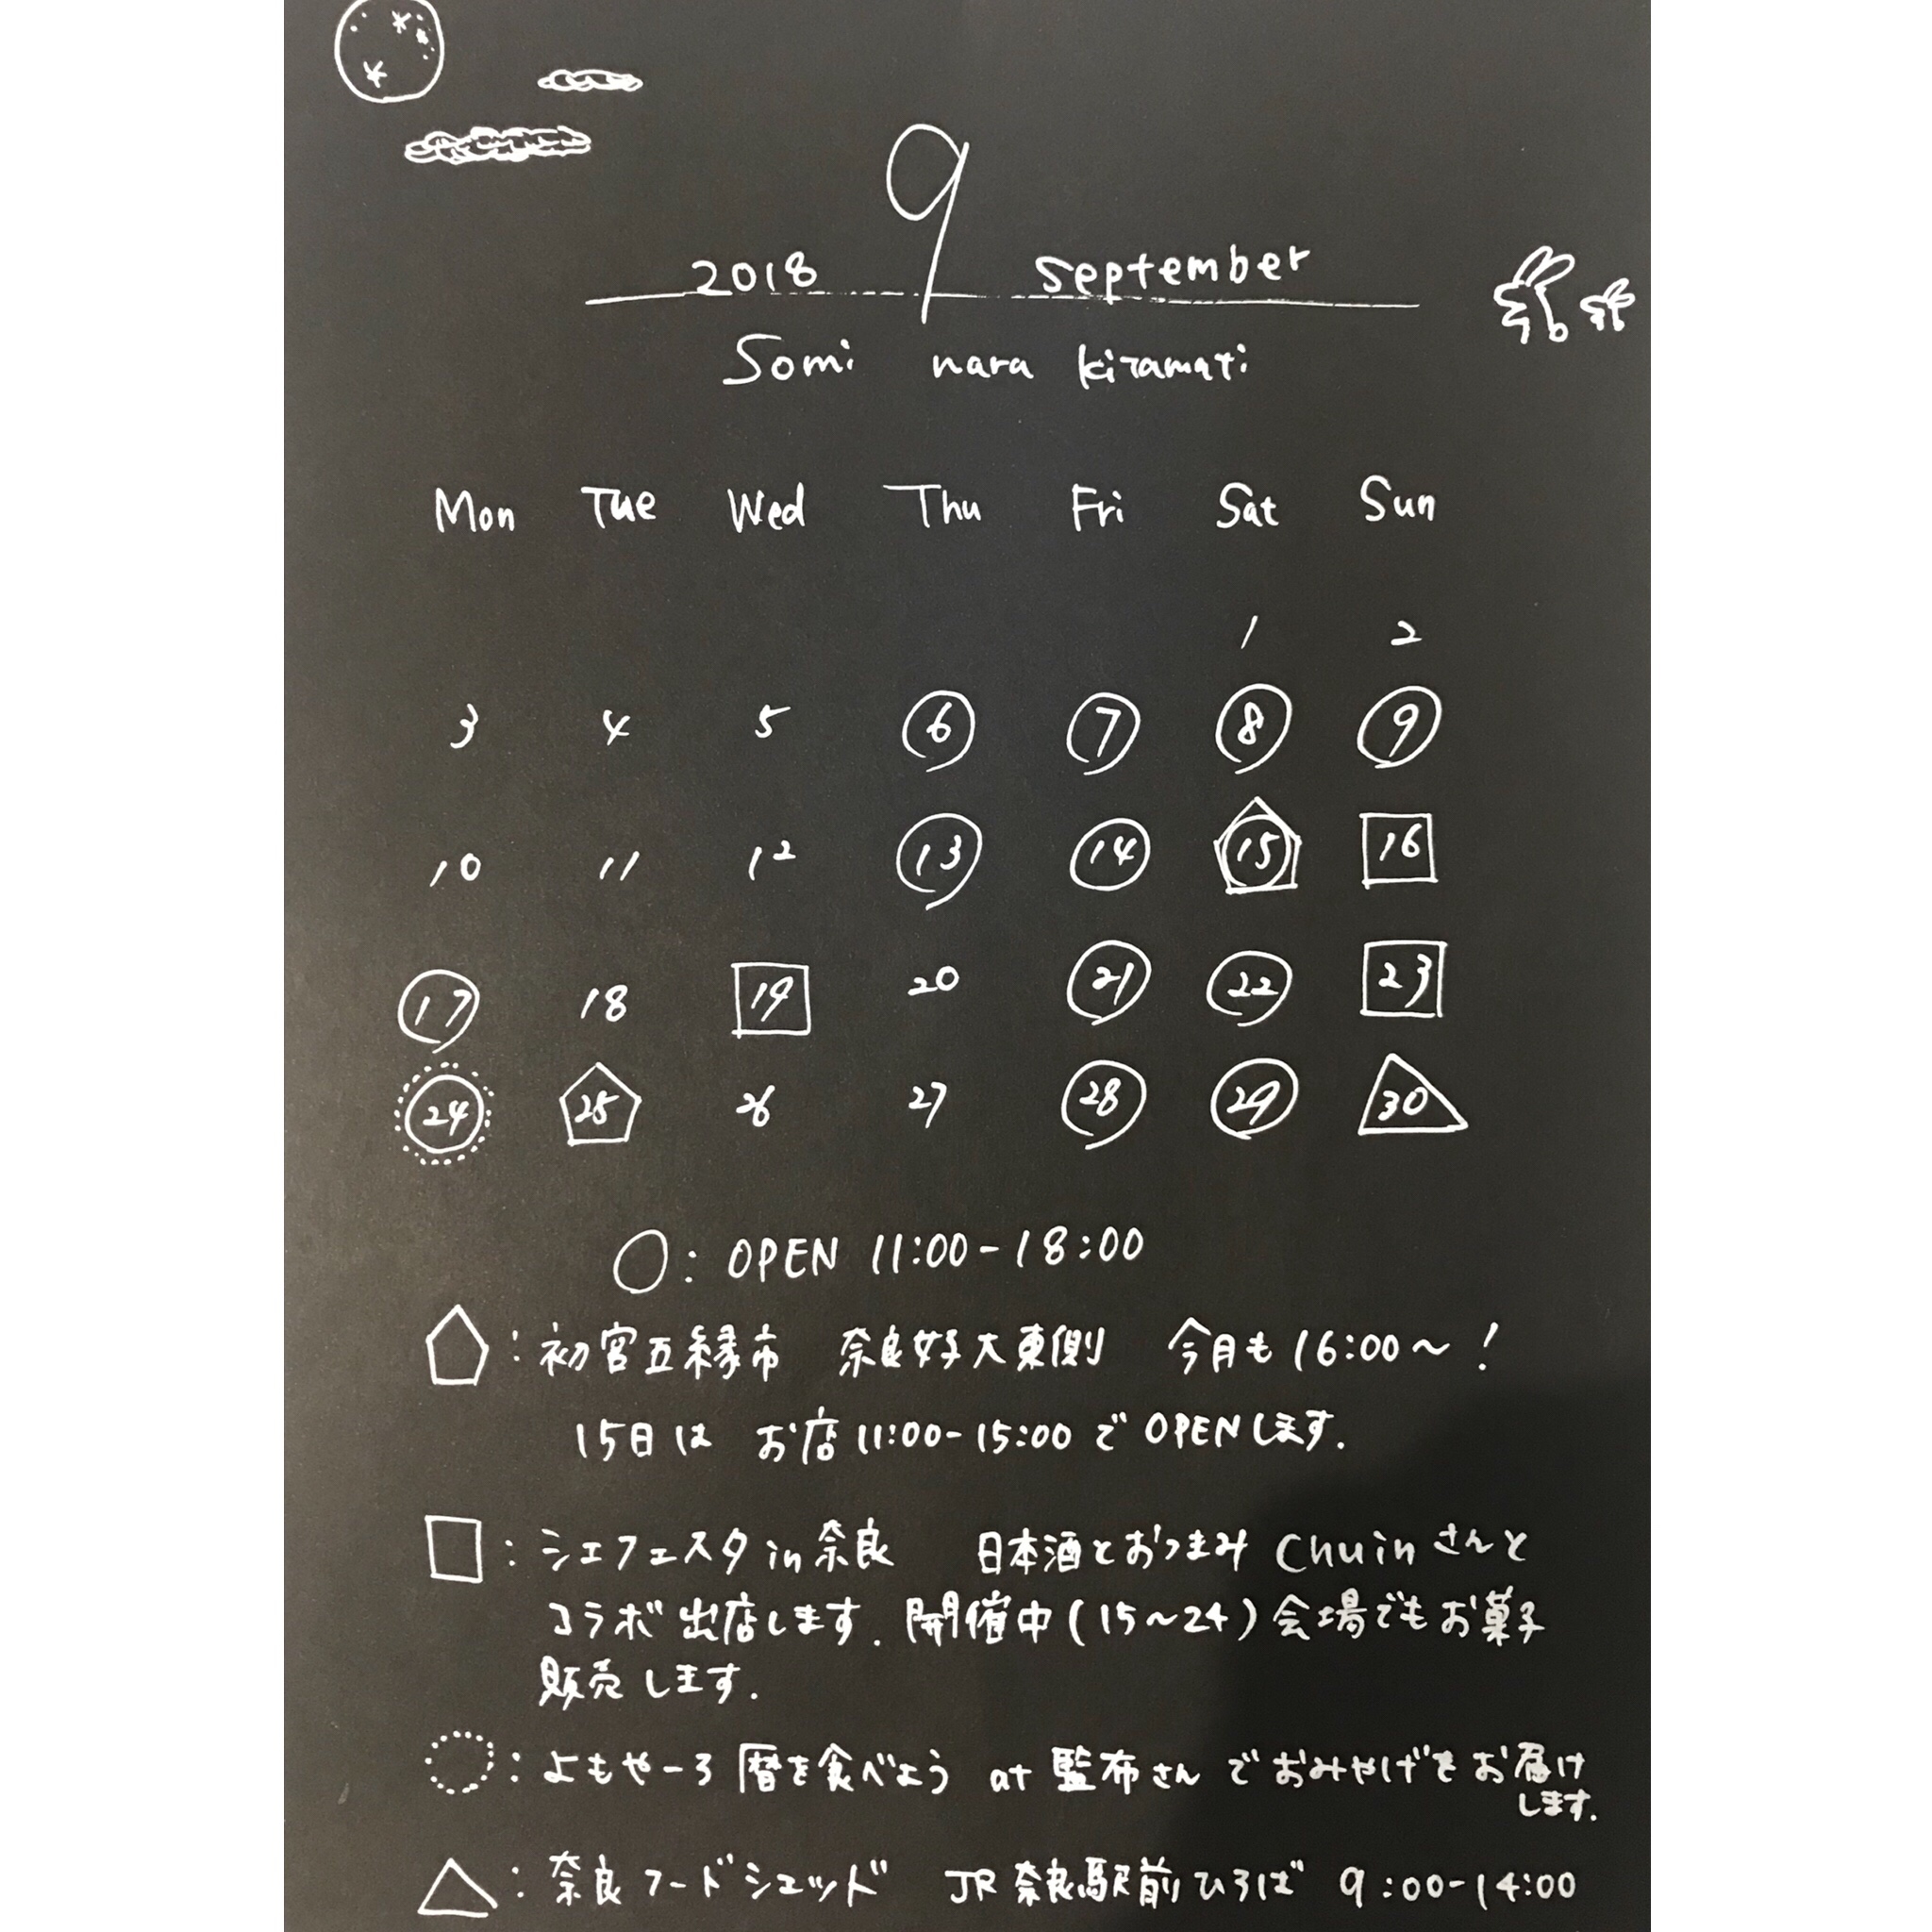 9
2018 September
Somi nara kitamati
Mon Tue Wed Thu Fri Sat Sun
1 2
3 4 5 6 7 8 9
10 11 12 13 14 15 16
17 18 19 20 21 22 23
24 25 26 27 28 29 30
○: OPEN 11:00-18:00
:初宮五縁市 奈良女子大東側 今月も16:00~!
15日は お店11:00-15:00でOPENします.
□:シェフェスタin奈良 日本酒とおつまみ Chuinさんと
コラボ出店します.開催中(15~24)会場でもお菓子
販売します.
:よもやーろ 暦を食べよう at 藍布さん でおみやげをお届け
します.
△:奈良フードシェッド JR奈良駅前ひろば 9:00-14:00